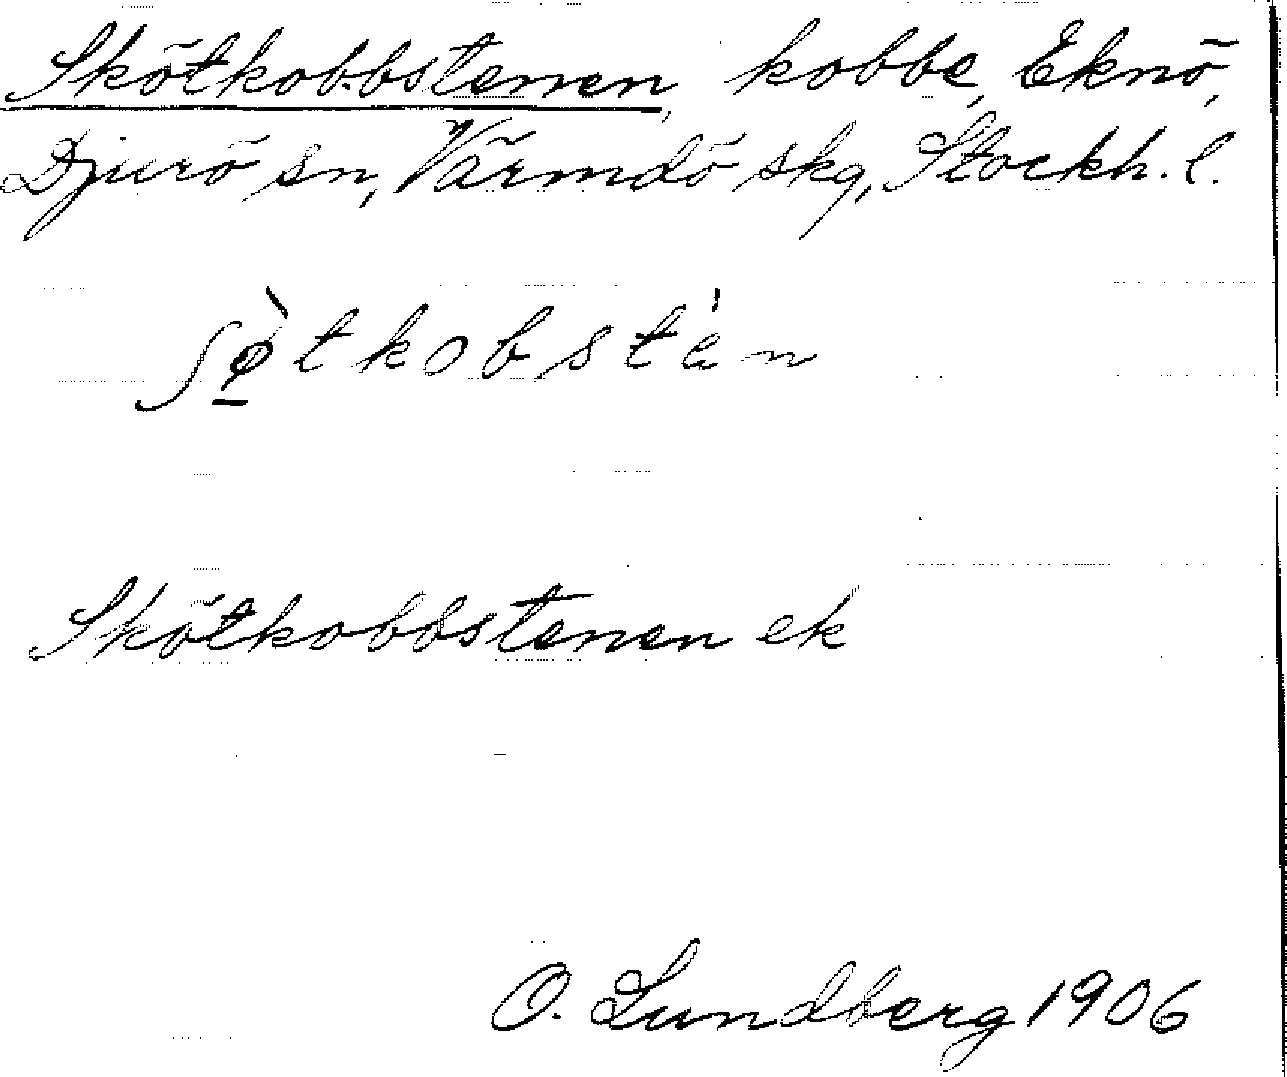 Skötkobbstenen, kobbe, Eknö,
Djurö sn, Värmdö skg, Stockh. l.
ʃø̲̀tkobste̍n
Skötkobbstenen ek
O. Lundberg 1906